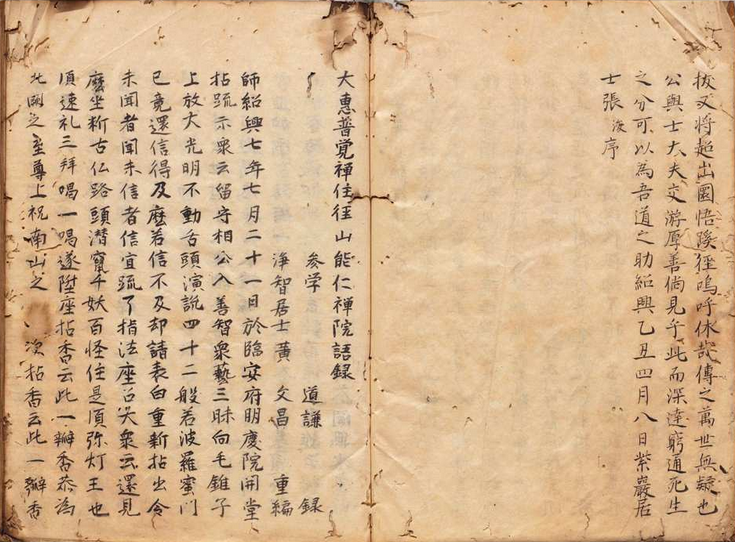 拔又將超出圜悟蹊徑嗚呼休哉傳之萬世無疑也
公與士大夫交游厚善倘見乎此而深達窮通死生
之分可以為吾道之助紹興乙丑四月八日紫巖居
士張浚序
大惠普覚禪住径山能仁禪院語録
參学道謙録
淨智居士黃文昌重編
師紹興七年七月二十一日於臨安府明慶院開堂
拈疏示衆云留守相公入善智衆藝三昧向毛錐子
上放大光明不動舌頭演說四十二般若波羅蜜門
已竟還信得及麽若信不及却請表白重新拈出令
未聞者聞未信者信宜疏了指法座召大衆云還見
麽坐斷古仏路頭潛竄千妖百怪住是須弥灯王也
須速礼三拜喝一喝遂陞座拈香云此一瓣香恭為
北闕之至尊上祝南山之 次拈香云此一瓣香